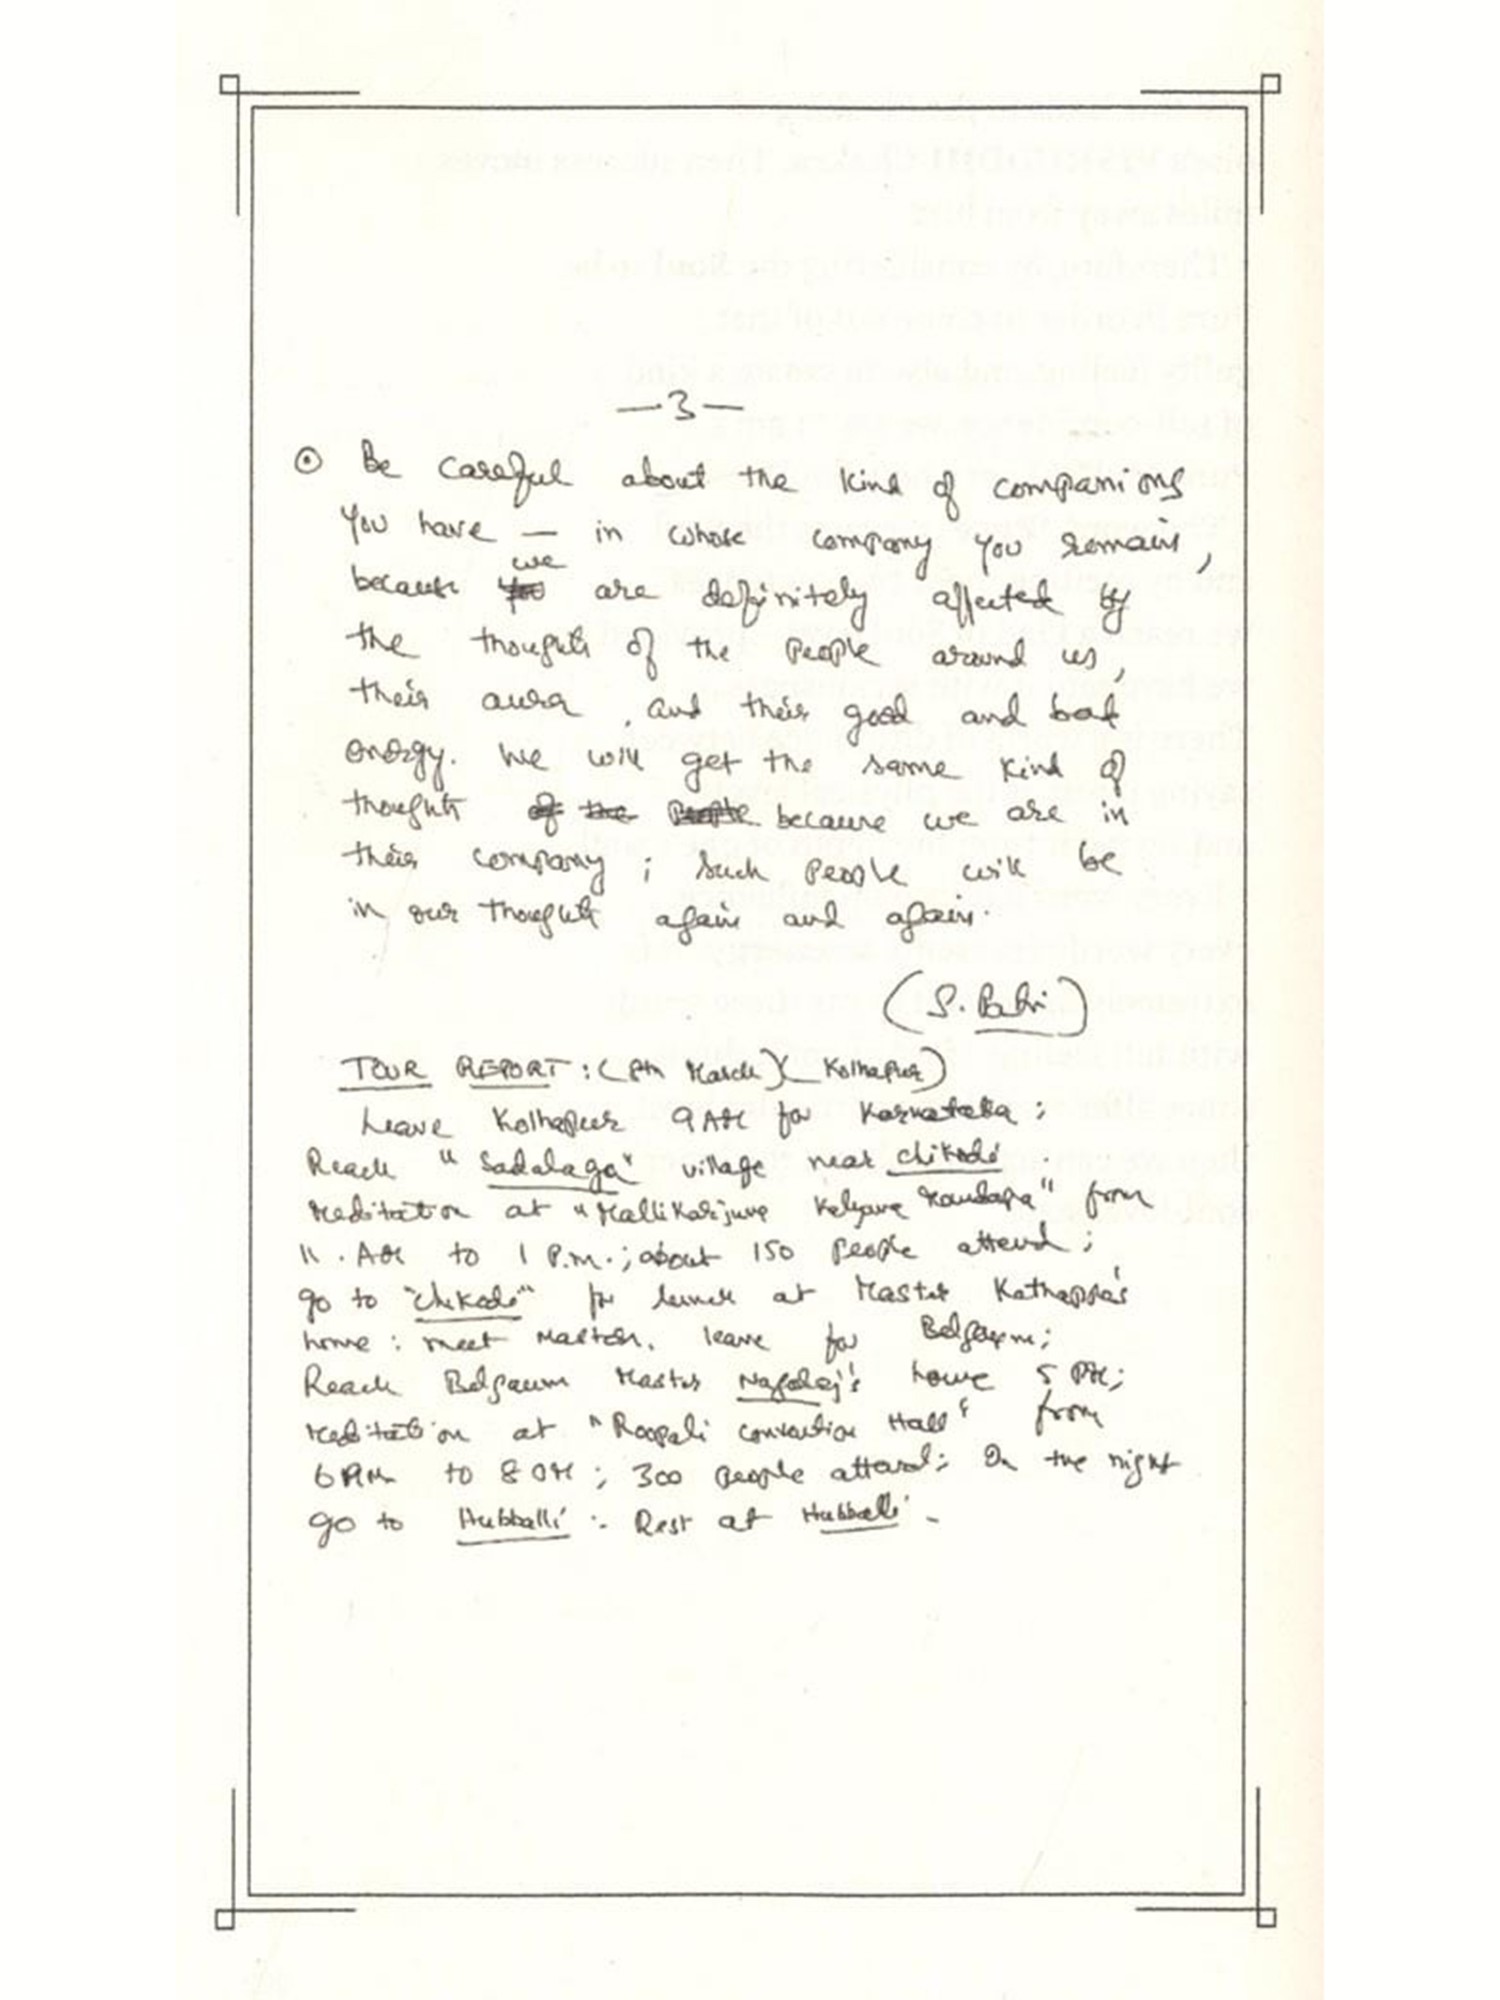 —3—
⊙ Be careful about the kind of companions
you have — in whose company you remain,
we
because you are definitely affected by
the thoughts of the people around us,
their aura, and their good and bad
energy. We will get the same kind of
thoughts of the people because we are in
their company; such people will be
in our thoughts again and again.
(S. Patri)
TOUR REPORT: (8th March) (Kolhapur)
Leave Kolhapur 9 AM for Karnataka;
Reach "Sadalaga" village near Chikodi.
Meditation at "Mallikarjuna Kalyana Mandapa" from
11. AM to 1 P.M.; about 150 people attend;
go to "Chikodi" for lunch at Master Kathappa's
home: meet Masters. leave for Belgaum;
Reach Belgaum Master Nagaraj's home 5 PM;
Meditation at "Roopali convention Hall" from
6 PM to 8 PM; 300 people attend; In the night
go to Hubballi :- Rest at Hubballi -